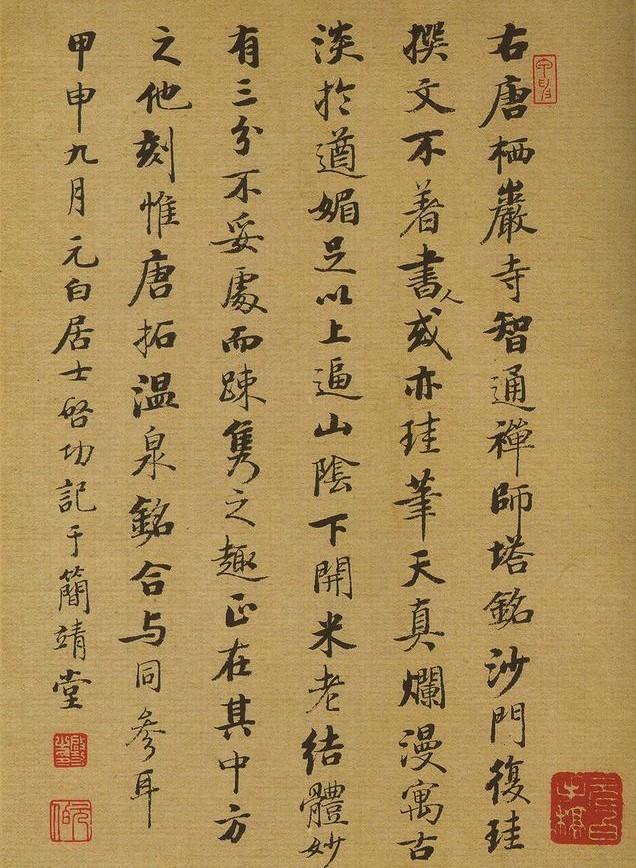 右唐栖巖寺智通禪師塔銘沙門復珪
撰文不著書人或亦珪筆天真爛漫寓古
淡於遒媚足以上逼山陰下開米老結體妙
有三分不妥處而踈隽之趣正在其中方
之他刻惟唐拓温泉銘合与同參耳
甲申九月元白居士啓功記于簡靖堂